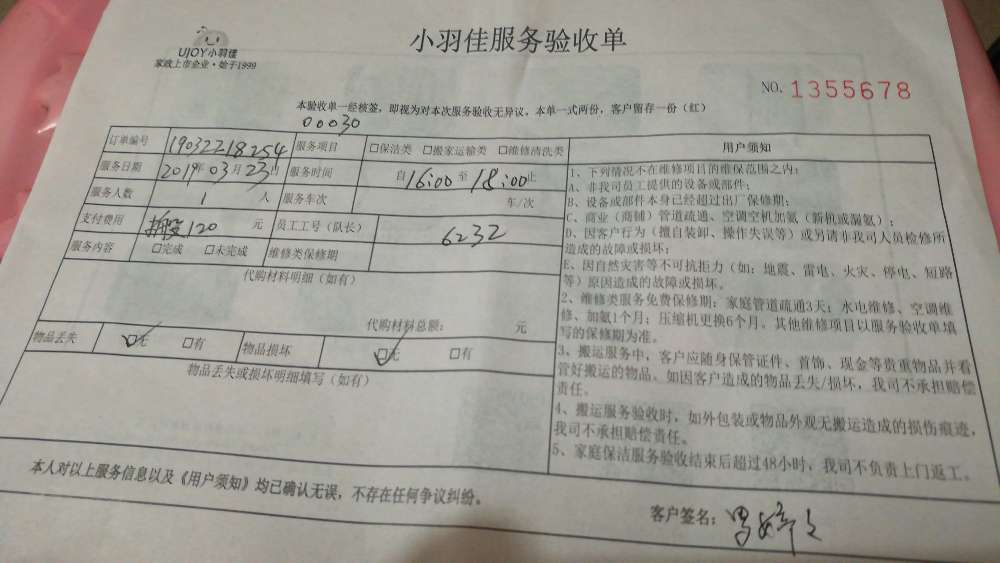 UJOY小羽佳
家政上市企业·始于1999
小羽佳服务验收单
NO. 1355678
本验收单一经核签，即视为对本次服务验收无异议，本单一式两份，客户留存一份（红）
00030
订单编号 19032218254 服务项目 □保洁类 □搬家运输类 □维修清洗类
服务日期 2019年03月23日 服务时间 自16:00至18:00止
服务人数 1 人 服务车次 车/次
支付费用 120 元 员工工号（队长） 6232
服务内容 □完成 □未完成 维修类保修期
代购材料明细（如有）
代购材料总额： 元
物品丢失 ☑无 □有 物品损坏 ☑无 □有
物品丢失或损坏明细填写（如有）
用户须知
1、下列情况不在维修项目的维保范围之内：
A、非我司员工提供的设备或部件；
B、设备或部件本身已经超过出厂保修期；
C、商业（商铺）管道疏通、空调空机加氟（新机或漏氟）；
D、因客户行为（擅自装卸、操作失误等）或另请非我司人员检修所
造成的故障或损坏；
E、因自然灾害等不可抗拒力（如：地震、雷电、火灾、停电、短路
等）原因造成的故障或损坏。
2、维修类服务免费保修期：家庭管道疏通3天；水电维修、空调维
修、加氟1个月；压缩机更换6个月。其他维修项目以服务验收单填
写的保修期为准。
3、搬运服务中，客户应随身保管证件、首饰、现金等贵重物品并看
管好搬运的物品。如因客户造成的物品丢失/损坏，我司不承担赔偿
责任。
4、搬运服务验收时，如外包装或物品外观无搬运造成的损伤痕迹，
我司不承担赔偿责任。
5、家庭保洁服务验收结束后超过48小时，我司不负责上门返工。
本人对以上服务信息以及《用户须知》均已确认无误，不存在任何争议纠纷。
客户签名：